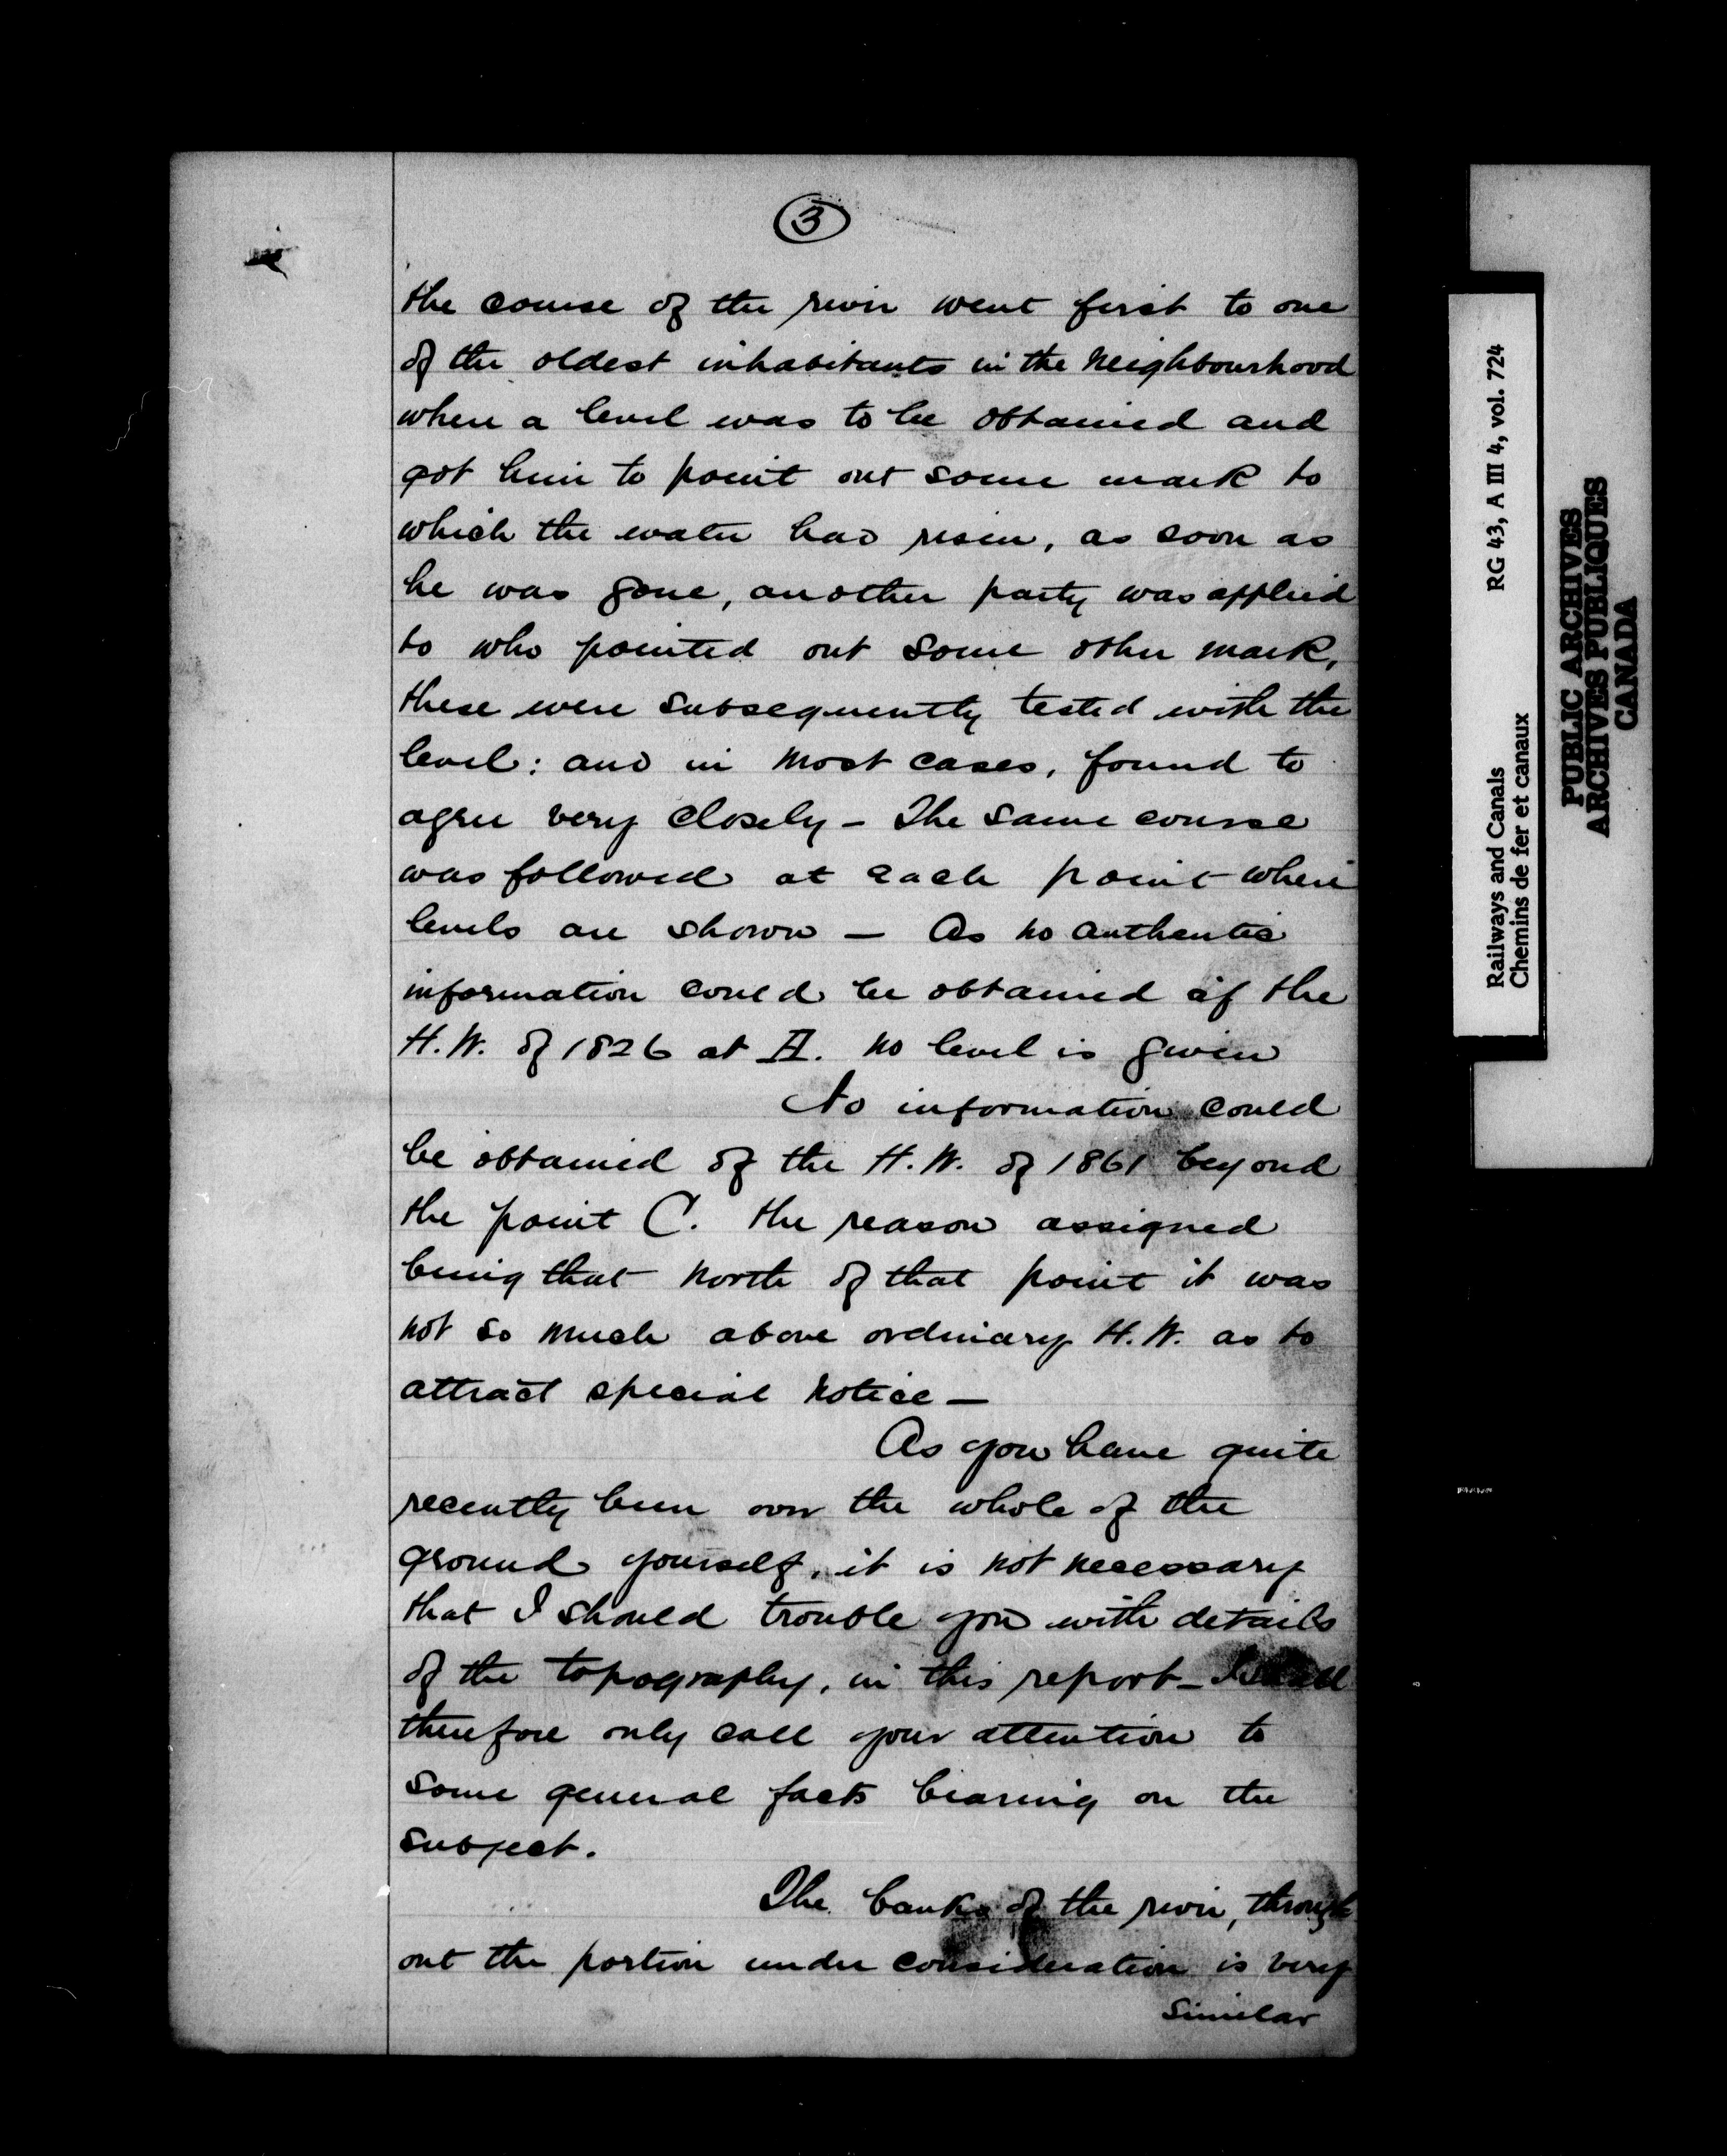 3
the course of the river went first to one
of the oldest inhabitants in the neighbourhood
where a level was to be obtained and
got him to point out some mark to
which the water had risen, as soon as
he was gone, another party was applied
to who pointed out some other mark,
these were subsequently tested with the
level: and in most cases, found to
agree very closely – The same course
was followed at each point where
levels are shown – As no authentic
information could be obtained of the
H.W. of 1826 at no level is given
No information could
be obtained of the H.W. of 1861 beyond
the point C. the reason assigned
being that north of that point it was
not so much above ordinary H.W. as to
attract special notice –
As you have quite
recently been over the whole of the
ground yourself, it is not necessary
that I should trouble you with details
of the topography, in this report –
therefore only call your attention to
some general facts bearing on the
subject.
The banks of the river, through
out the portion under consideration is very
similar
Railways and Canals RG 43, A III 4, vol. 724
Chemins de fer et canaux
PUBLIC ARCHIVES
ARCHIVES PUBLIQUES
CANADA